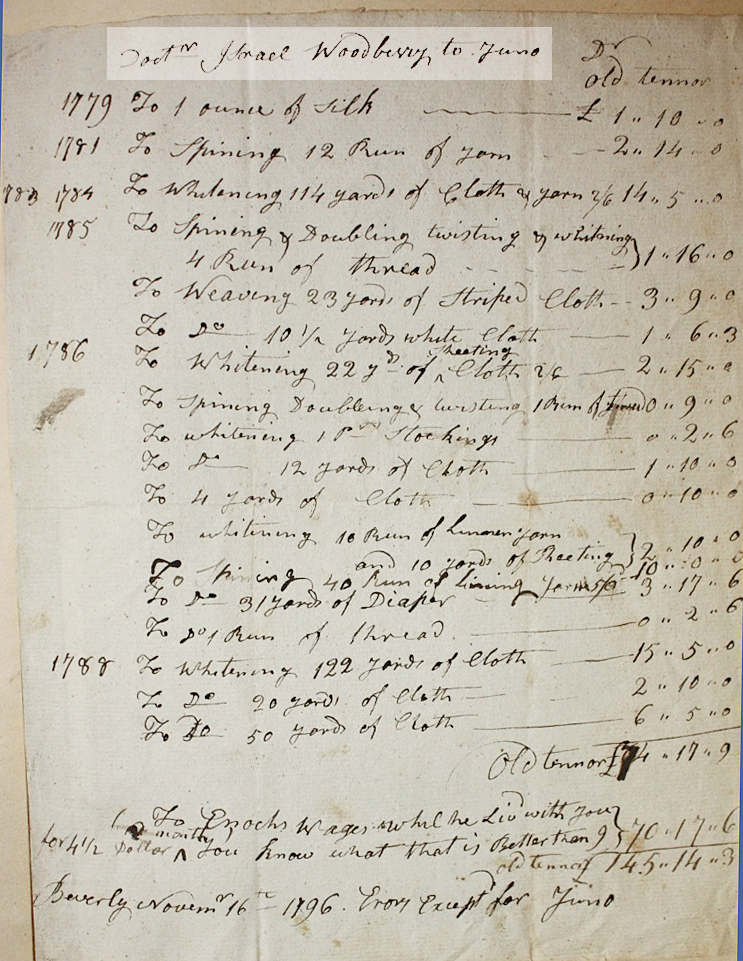 Doctr Israel Woodberry to Juno Dr
old tennor
1779 To 1 ounce of Silk £ 1 " 10 " 0
1781 To Spining 12 Run of yarn 2 " 14 " 0
1783 1784 To Whitening 114 yards of Cloth & yarn 2/6 14 " 5 " 0
1785 To Spining & Doubling twisting & whitning
4 Run of thread 1 " 16 " 0
To Weaving 23 yards of Striped Cloth 3 " 9 " 0
To Do 10 1/2 yards white Cloth 1 " 6 " 3
1786 To Whitening 22 yds of Sheeting Cloth 2/6 2 " 15 " 0
To Spining Doubleing & twisting 1 Run of 0 " 9 " 0
To whitening 1 Pr Stockings 0 " 2 " 6
To Do 12 yards of Cloth 1 " 10 " 0
To 4 yards of Cloth 0 " 10 " 0
To whitening 10 Run of Linnen yarn
and 10 yards of Sheeting 2 " 10 " 0
To Spining 40 Run of Lining yarn 5/ 10 " 0 " 0
To Do 31 yards of Diaper 3 " 17 " 6
To Do 1 Run of thread 0 " 2 " 6
1788 To Whitening 122 yards of Cloth 15 " 5 " 0
To Do 20 yards of Cloth 2 " 10 " 0
To Do 50 yards of Cloth 6 " 5 " 0
Old tennor £74 " 17 " 9
To Enochs Wages whil he Livd with you
for 4 1/2 Dollar months you know what that is Better than 9 70 " 17 " 6
old tennor 145 " 14 " 3
Beverly Novemr 16th 1796. Erors Exceptd for Juno